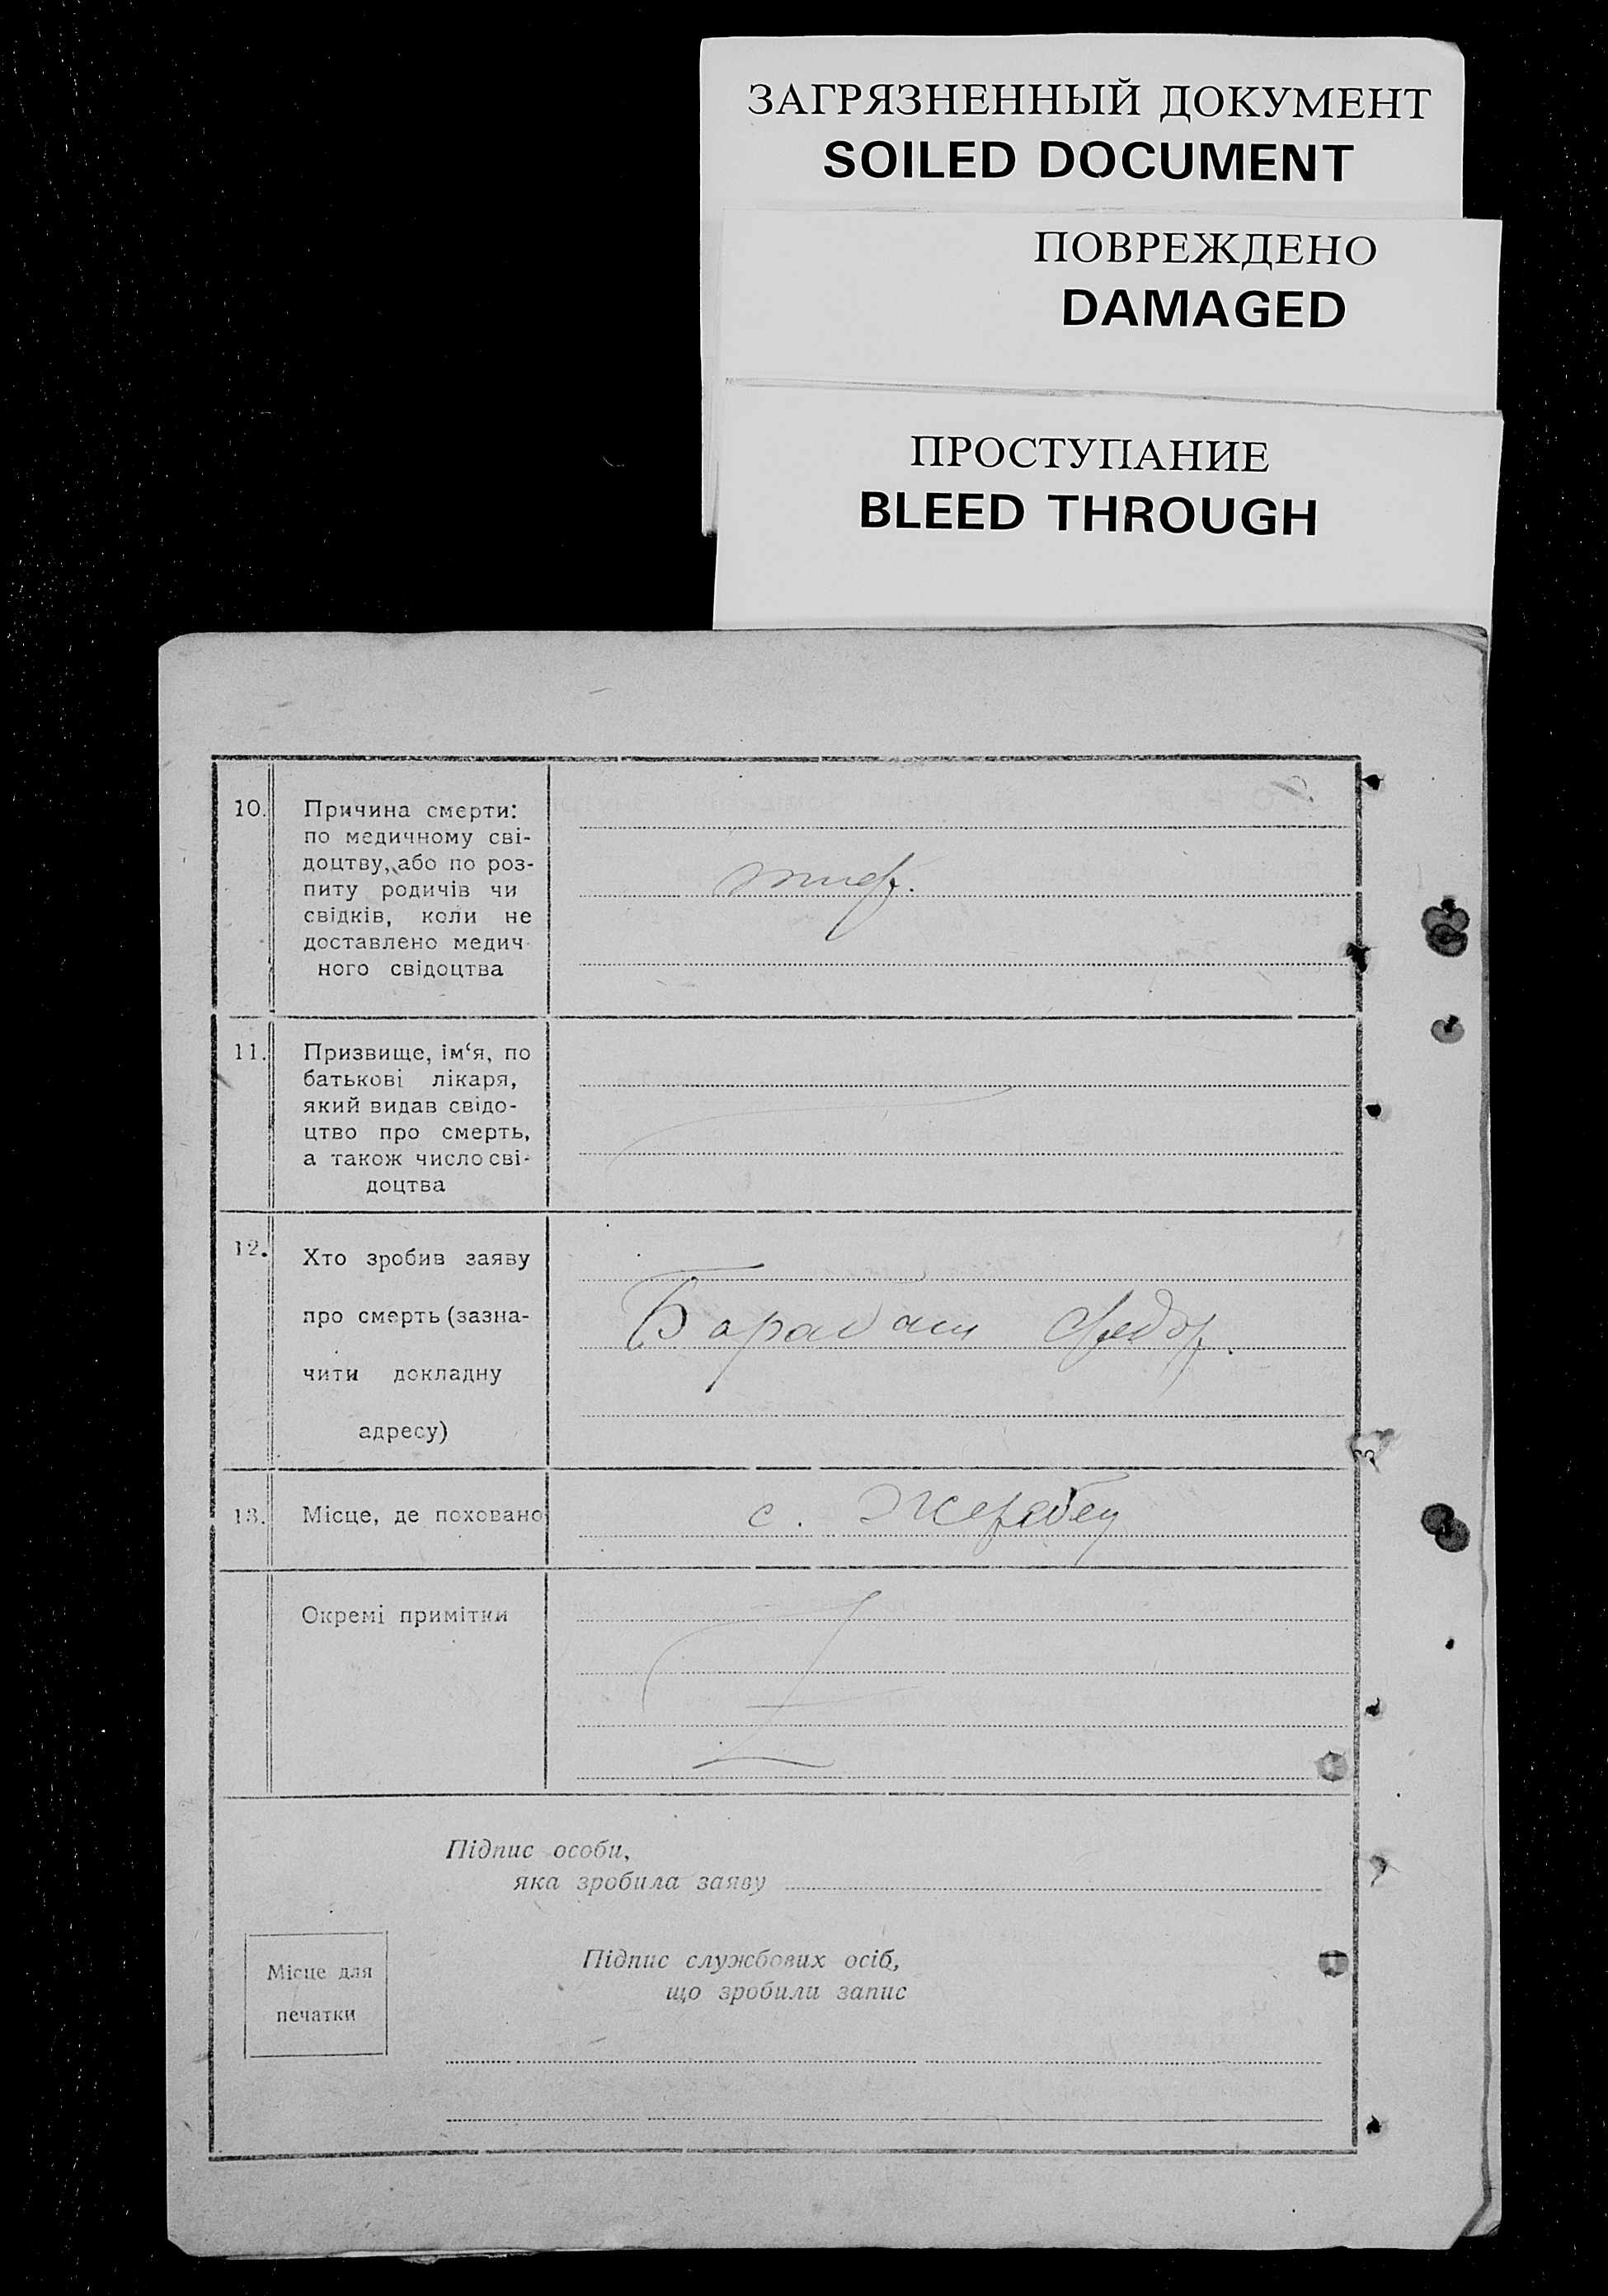 ЗАГРЯЗНЕННЫЙ ДОКУМЕНТ
SOILED DOCUMENT
ПОВРЕЖДЕНО
DAMAGED
ПРОСТУПАНИЕ
BLEED THROUGH
10. Причина смерти:
по медичному сві-
доцтву, або по роз-
питу родичів чи
свідків, коли не
доставлено медич-
ного свідоцтва
тиф.
11. Призвище, ім‘я, по
батькові лікаря,
який видав свідо-
цтво про смерть,
а також число сві-
доцтва
12. Хто зробив заяву
про смерть (зазна-
чити докладну
адресу)
Барабаш Федор.
13. Місце, де поховано
с. Жеребец
Окремі примітки
Підпис особи,
яка зробила заяву
Місце для
печатки
Підпис службових осіб,
що зробили запис